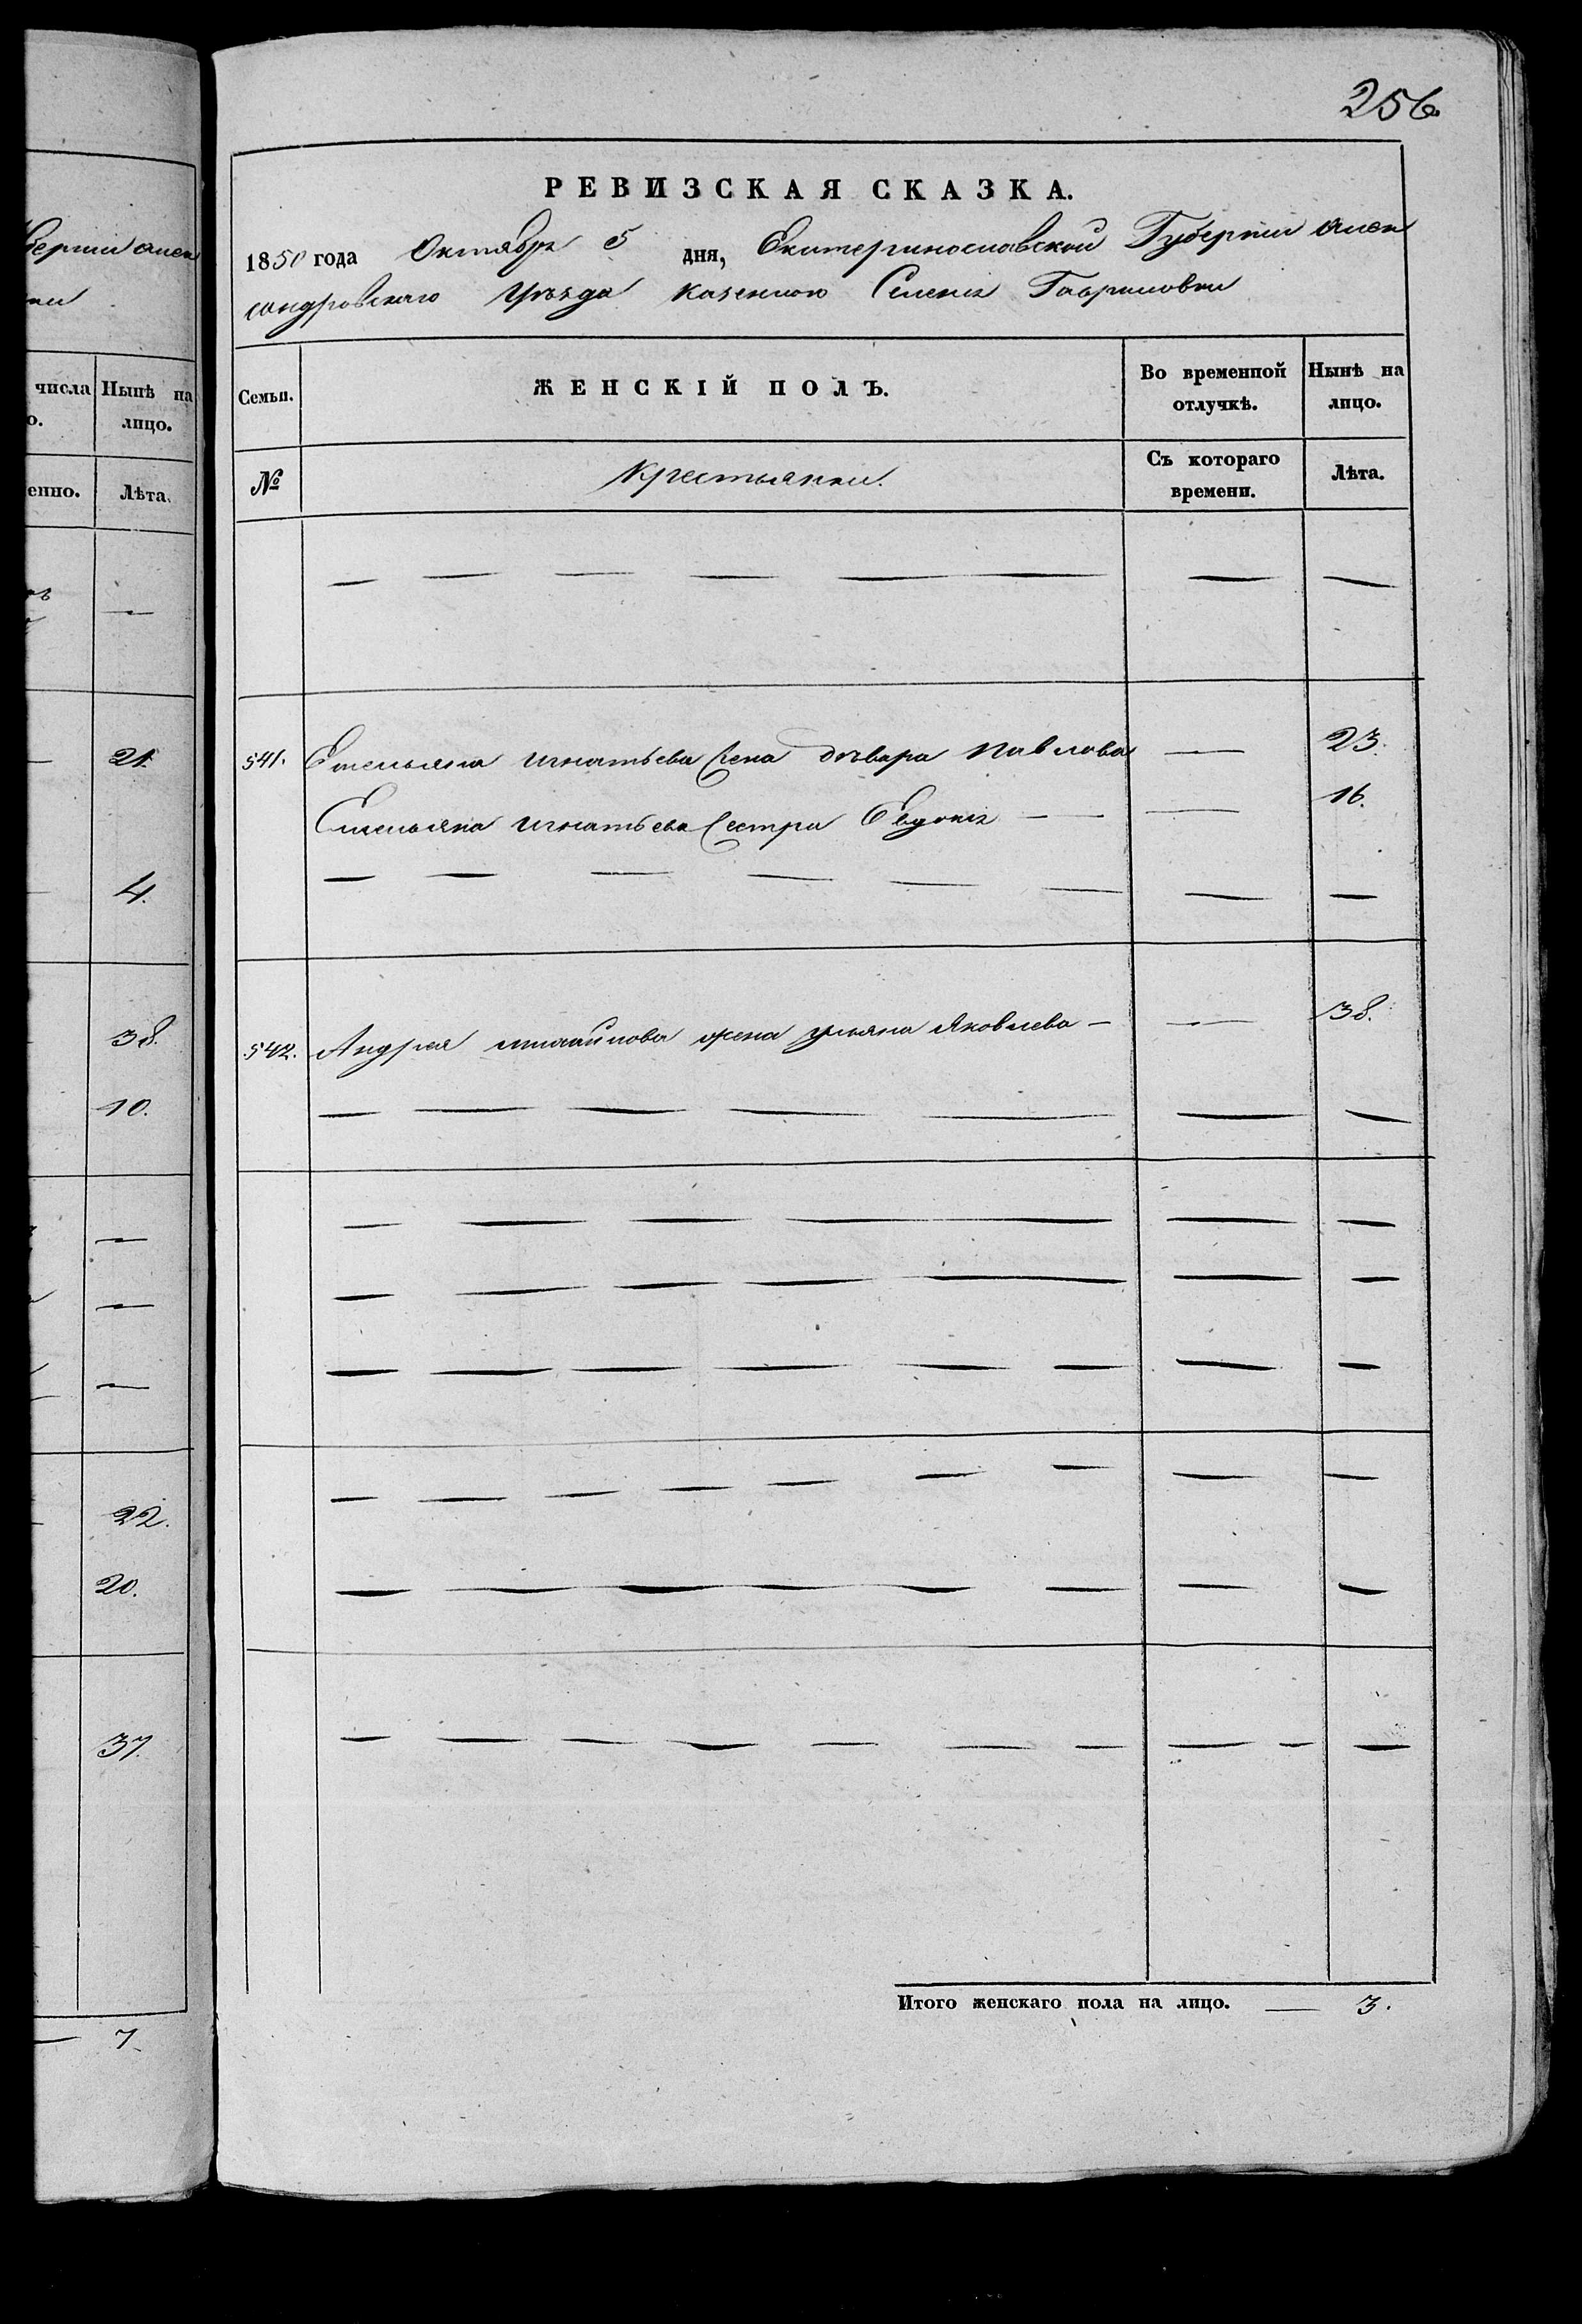 256
РЕВИЗСКАЯ СКАЗКА.
1850 года Октября 5 дня, Екатеринославской Губернии Алек
сандровскаго Уѣзда казенного Селенія Гавриловки
Семьи. ЖЕНСКІЙ ПОЛЪ. Во временной отлучкѣ. Нынѣ на лицо.
№ Крестьянки. Съ котораго времени. Лѣта.
541. Емельяна Игнатьева Жена Варвара Павлова — 23.
Емельяна Игнатьева Сестра Евдокія — — 16.
542. Андрея Михайлова жена Ульяна Яковлева — — 38.
Итого женскаго пола на лицо. — 3.
берніи Алек
ки
числа Нынѣ на
о. лицо.
енно. Лѣта.
21.
4.
38.
10.
22.
20.
37.
— 7.